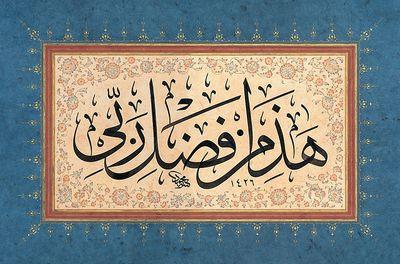 هَذَا مِنْ فَضْلِ رَبِّى
١٤٢٦